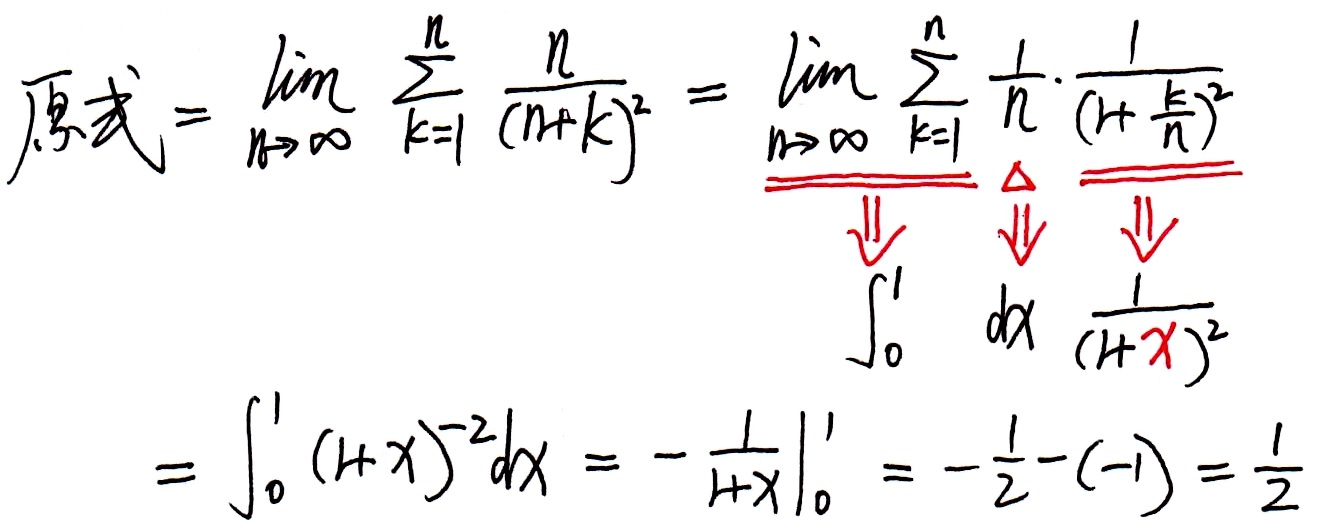 原式 = lim_{n→∞} ∑_{k=1}^{n} n/(n+k)² = lim_{n→∞} ∑_{k=1}^{n} 1/n · 1/(1+k/n)²
⇓ △⇓ ⇓
∫₀¹ dx 1/(1+x)²
= ∫₀¹ (1+x)⁻² dx = - 1/(1+x) |₀¹ = - 1/2 - (-1) = 1/2